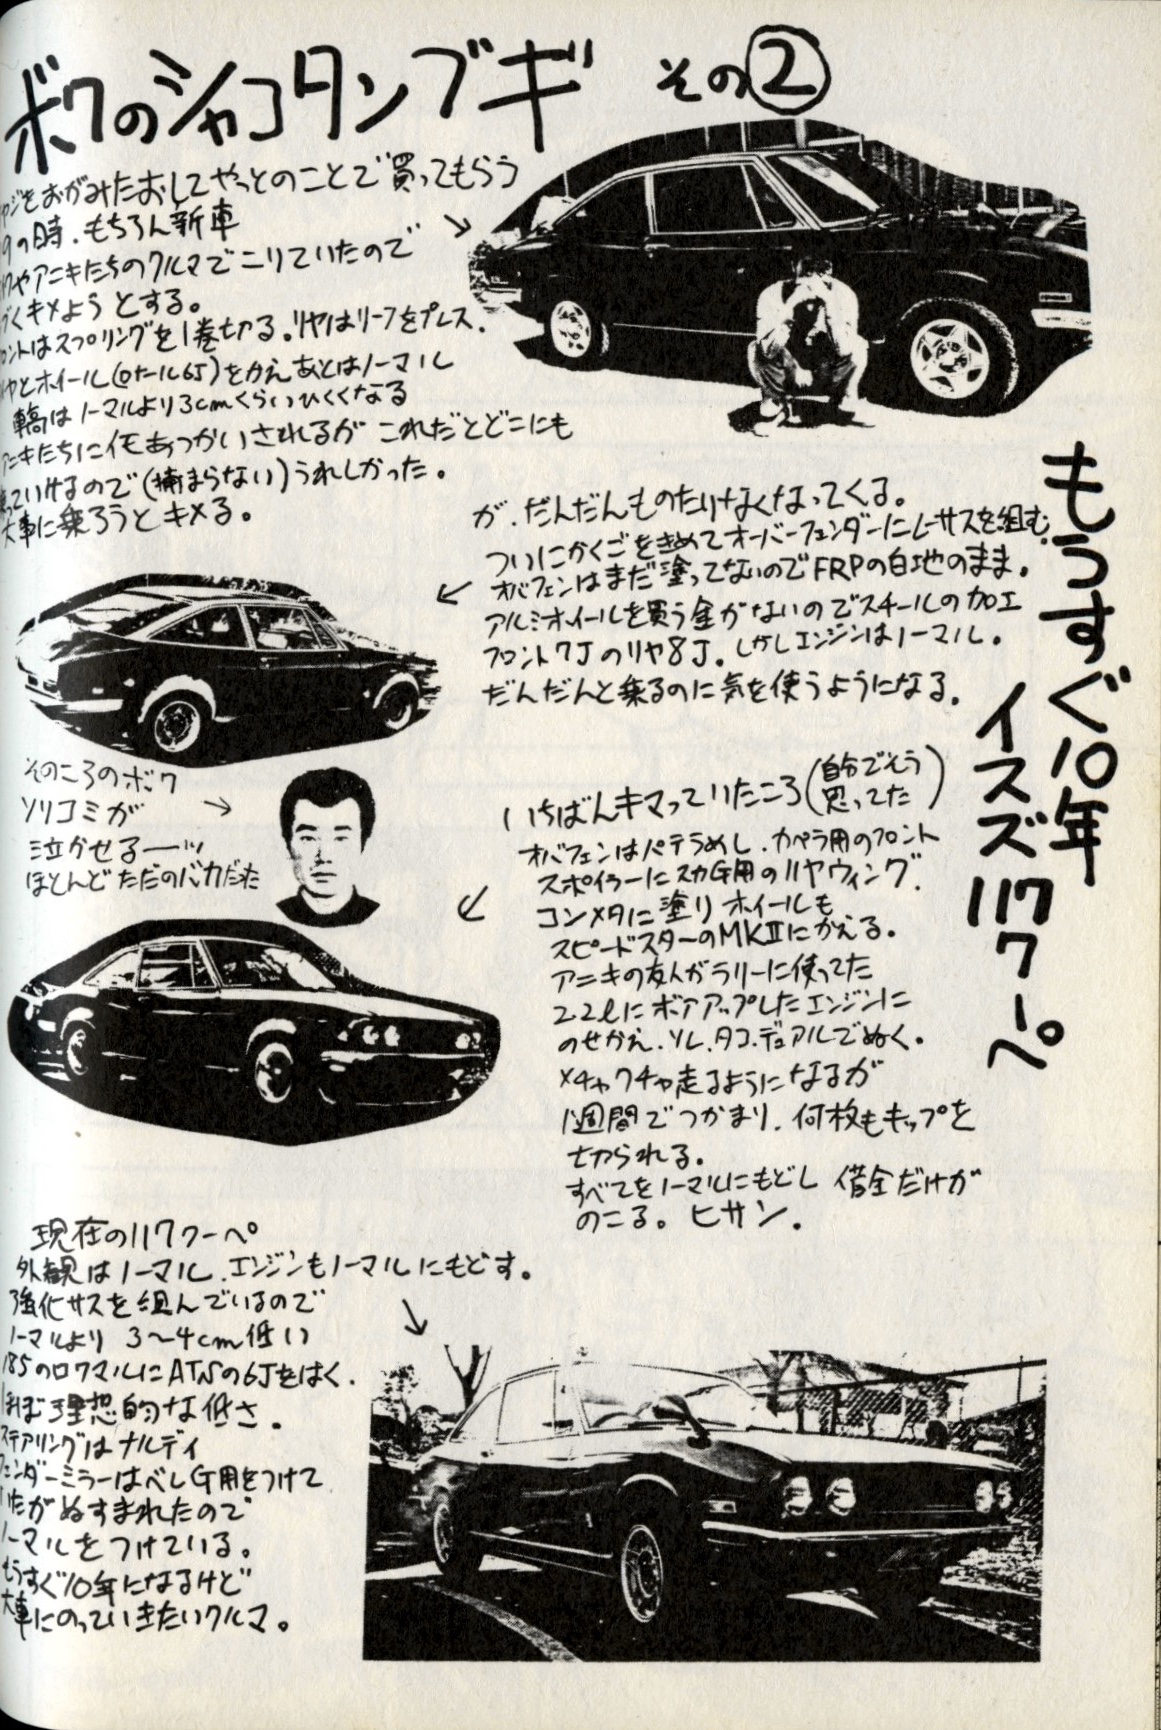 ボクのシャコタンブギ その②
ヤジをおがみたおしてやっとのことで買ってもらう
9の時.もちろん新車
やアニキたちのクルマでこりていたので
くキメようとする。
ントはスプリングを1巻切る.リヤはリーフをプレス.
ヤとホイール(ロナール6J)をかえあとはノーマル
車高はノーマルより3cmくらいひくくなる
アニキたちにイモあつかいされるが これだとどこにも
っていけるので(捕まらない)うれしかった.
大事に乗ろうとキメる。
もうすぐ10年
イスズ117クーペ
が.だんだんものたりなくなってくる。
ついにかくごをきめてオーバーフェンダーにレーサスを組む
オバフェンはまだ塗ってないのでFRPの白地のまま.
アルミホイールを買う金がないのでスチールの加工
フロント7Jのリヤ8J.しかしエンジンはノーマル.
だんだんと乗るのに気を使うようになる.
そのころのボク
ソリコミが
泣かせるーッ
ほとんどただのバカだった
いちばんキマっていたころ(自分でそう思ってた)
オバフェンはパテうめし.カペラ用のフロント
スポイラーにスカG用のリヤウィング.
コンメタに塗りホイールも
スピードスターのMKⅡにかえる.
アニキの友人がラリーに使ってた
2.2ℓにボアアップしたエンジンに
のせかえ.ソレ.タコ.デュアルでぬく.
メチャクチャ走るようになるが
1週間でつかまり.何枚もキップを
切られる.
すべてをノーマルにもどし 借金だけが
のこる。ヒサン.
現在の117クーペ
外観はノーマル.エンジンもノーマルにもどす.
強化サスを組んでいるので
ノーマルより 3〜4cm低い
185のロクマルにATSの6Jをはく.
ほぼ理想的な低さ.
ステアリングはナルディ
フェンダーミラーはべしG用をつけて
いたがぬすまれたので
ノーマルをつけている.
もうすぐ10年になるけど
大事にのっていきたいクルマ。